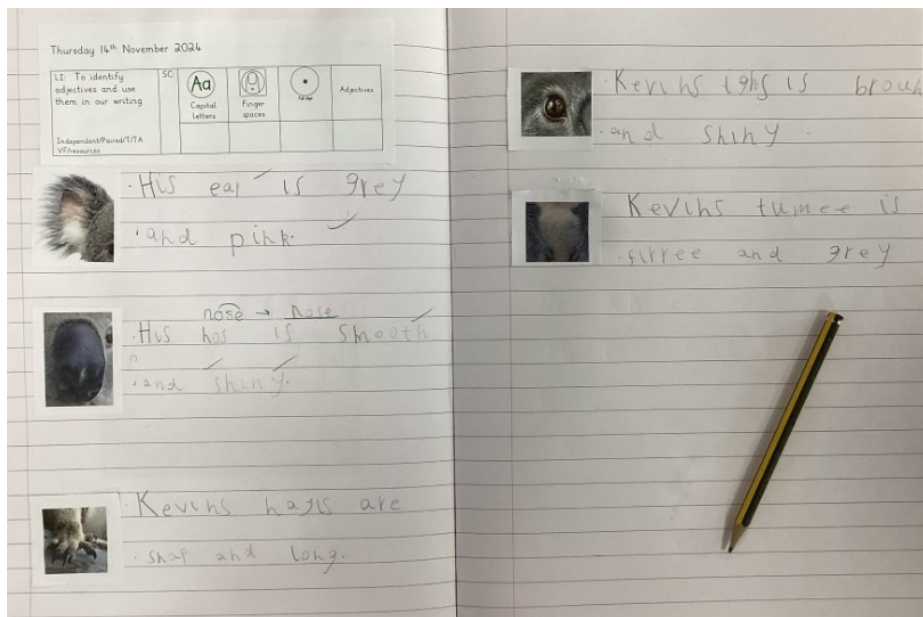 Thursday 14th November 2024
LI: To identify adjectives and use them in our writing
Independent/Paired/T/TA
VF/resources
SC
Aa
Capital letters
Finger spaces
Adjectives
· His ear is grey
· and pink.
nose → nose
· His nos is smooth
n
· and shiny.
· Kevins nayls are
· shap and long.
· Kevins ighs is brown
· and shiny.
Kevins tumee is
· firree and grey